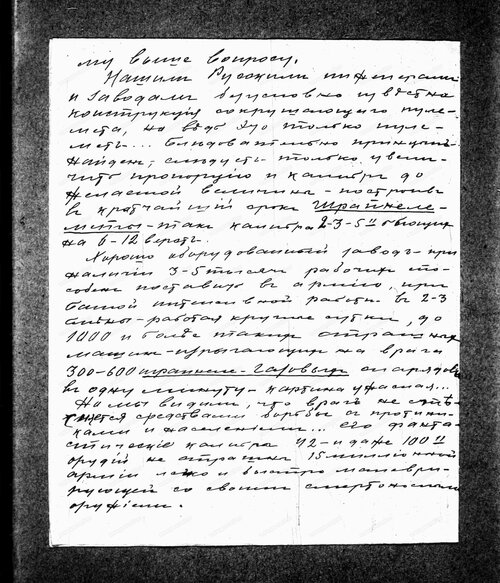 му выше вопросу.
Нашими Русскими инженерами
и заводами безусловно известна
конструкция сокрушающего пуле-
мета, но ведь это только пуле-
метъ... Следовательно принципъ
найденъ, следуетъ только увели-
чить пропорцію и калибръ до
желаемой величины - построивъ
въ кротчайшій срокъ Шрапнеле-
меты - такъ калибра 2-3-5" бьющих
на 6-12 верстъ.
Хорошо оборудованный заводъ - при
наличіи 3-5 тысячъ рабочихъ спо-
собенъ поставить въ армію, при
интенсивной работѣ въ 2-3
смѣны - работая круглые сутки, до
1000 и более такихъ страшныхъ
машинъ - изрыгающихъ на врага
300-600 шрапнеле-газовыхъ снарядовъ
въ одну минуту - картина ужасная...
Но мы видимъ, что врагъ не
средствами борьбы съ противни-
ками и населеніемъ... его фанта-
стическіе калибра 42 - и даже 100"
орудій не страшны 15 милліонной
арміи легко и быстро маневри-
рующей со своимъ смертоноснымъ
оружіемъ.